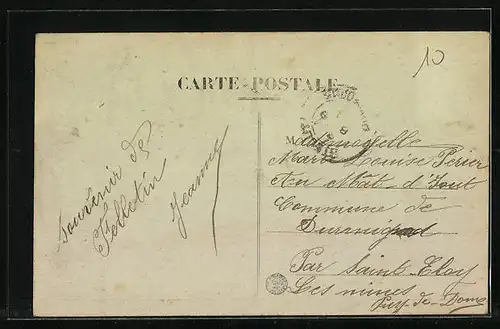 10
CARTE POSTALE
Souvenir de
Felletin
Jeanne
Mademoiselle
Marie Louise Perier
Au Mat d'
Commune de
Par Saint Eloy
Les mines
Puy-de-Dome